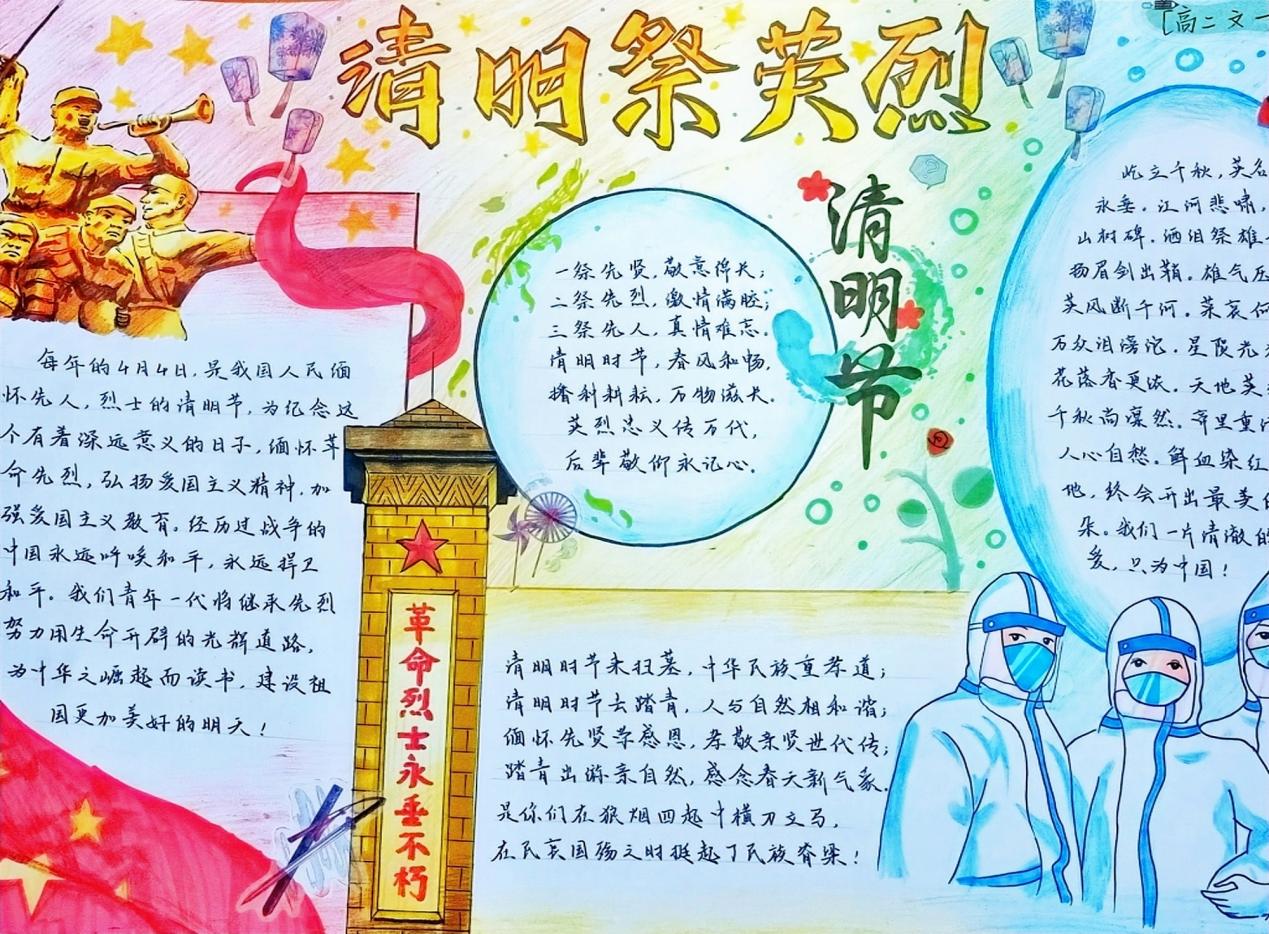 清明祭英烈
[高二文一
每年的4月4日,是我国人民缅
怀先人,烈士的清明节,为纪念这
个有着深远意义的日子,缅怀革
命先烈,弘扬爱国主义精神,加
强爱国主义教育。经历过战争的
中国永远呼唤和平,永远捍卫
和平。我们青年一代将继承先烈
努力用生命开辟的光辉道路,
为中华之崛起而读书,建设祖
国更加美好的明天!
革命烈士永垂不朽
一祭先贤,敬意绵长;
二祭先烈,激情满腔;
三祭先人,真情难忘。
清明时节,春风和畅,
播种耕耘,万物滋长。
英烈忠义传万代,
后辈敬仰永记心。
清明节
清明时节来扫墓,中华民族重孝道;
清明时节去踏青,人与自然相和谐;
缅怀先贤常感恩,孝敬亲贤世代传;
踏青出游亲自然,感念春天新气象。
是你们在狼烟四起中横刀立马,
在民哀国殇之时挺起了民族脊梁!
屹立千秋,英名
永垂。江河悲啸,
山村碑。洒泪祭雄
扬眉剑出鞘。雄气压
英风断千河。荣哀何
万众泪滂沱。星陨光
花落香更浓。天地英
千秋尚凛然。宵里重
人心自愁。鲜血染红
地,终会开出最美的
朵。我们一片清澈的
爱,只为中国!